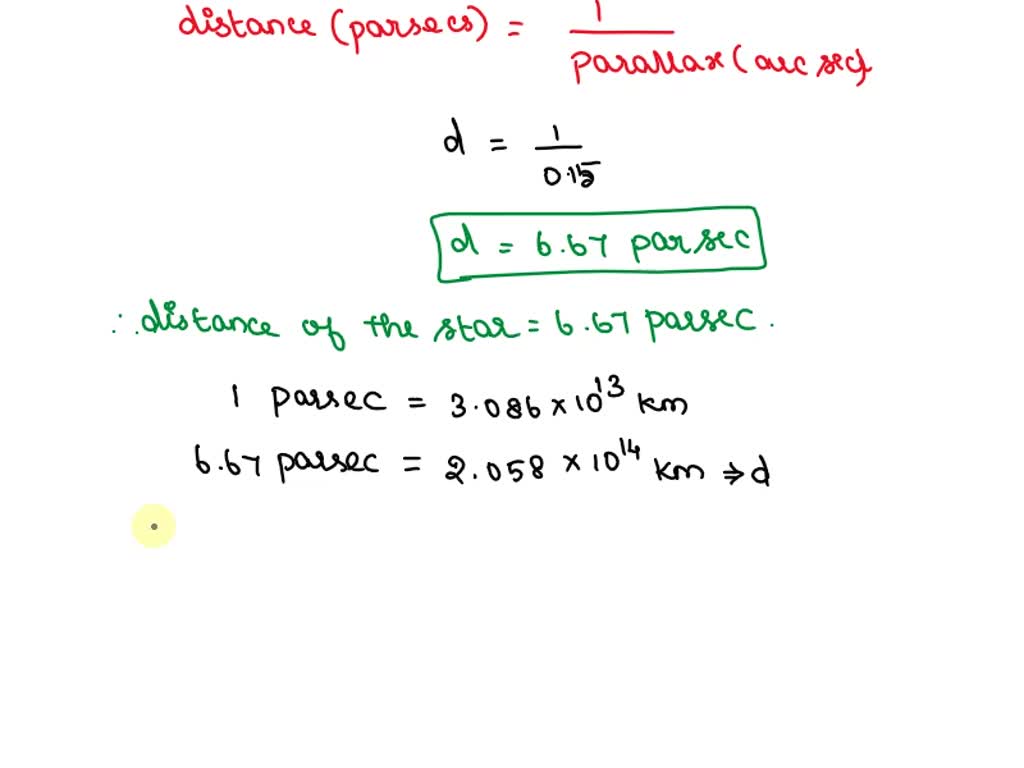 distance (parsecs) = 1 / parallax (arc sec)
d = 1 / 0.15
d = 6.67 parsec
∴ distance of the star = 6.67 parsec.
1 parsec = 3.086 × 10^13 km
6.67 parsec = 2.058 × 10^14 km ⇒ d